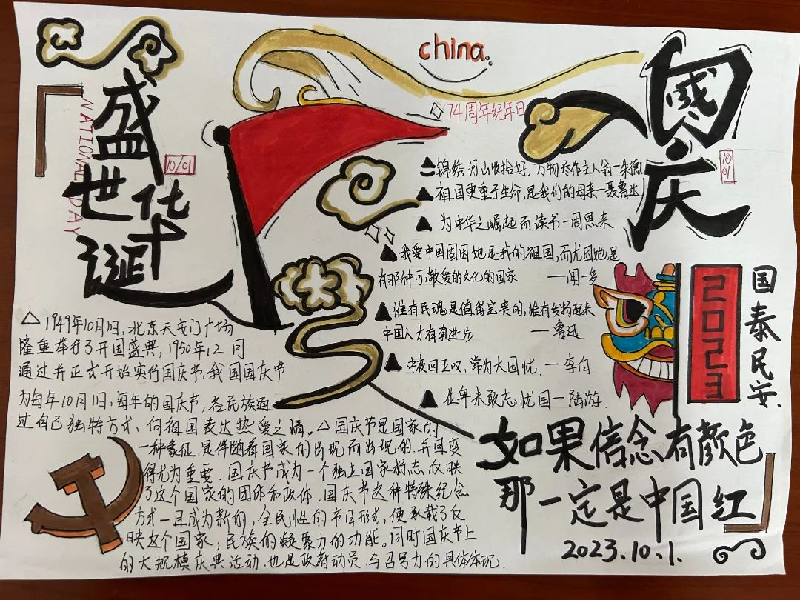 china.
74周年纪年日
盛世华诞
NATIONAL DAY
10/01
國庆
盛
10
01
国泰民安
2023
祖国更重于生命,是我们的母亲—聂鲁达
为中华之崛起而读书—周恩来
我爱中国固因他是我的祖国,而尤因他是
有那种可敬爱的文化的国家 ——闻一多
惟有民魂是值得宝贵的,惟有发扬起来
中国人才有真进步 ——鲁迅
中夜四五叹,常为大国忧.—李白
位卑未敢忘忧国—陆游.
△1949年10月1日,北京天安门广场
隆重举行了开国盛典,1950年12月
通过并正式开始实行国庆节,我国国庆节
为每年10月1日,每年的国庆节,各民族通
过自己独特方式,向祖国表达热爱之情.
△国庆节是国家的
一种象征,是伴随着国家的出现而出现的,并且变
得尤为重要.国庆节成为一个独立国家标志,反映
了这个国家的国体和政体.国庆节这种特殊纪念
方式一旦成为新的,全民性的节日形式,便承载了反
映这个国家,民族的凝聚力的功能.同时国庆节上
的大规模庆典活动,也是政府动员与号召力的具体体现.
如果信念有颜色
那一定是中国红
2023.10.1.